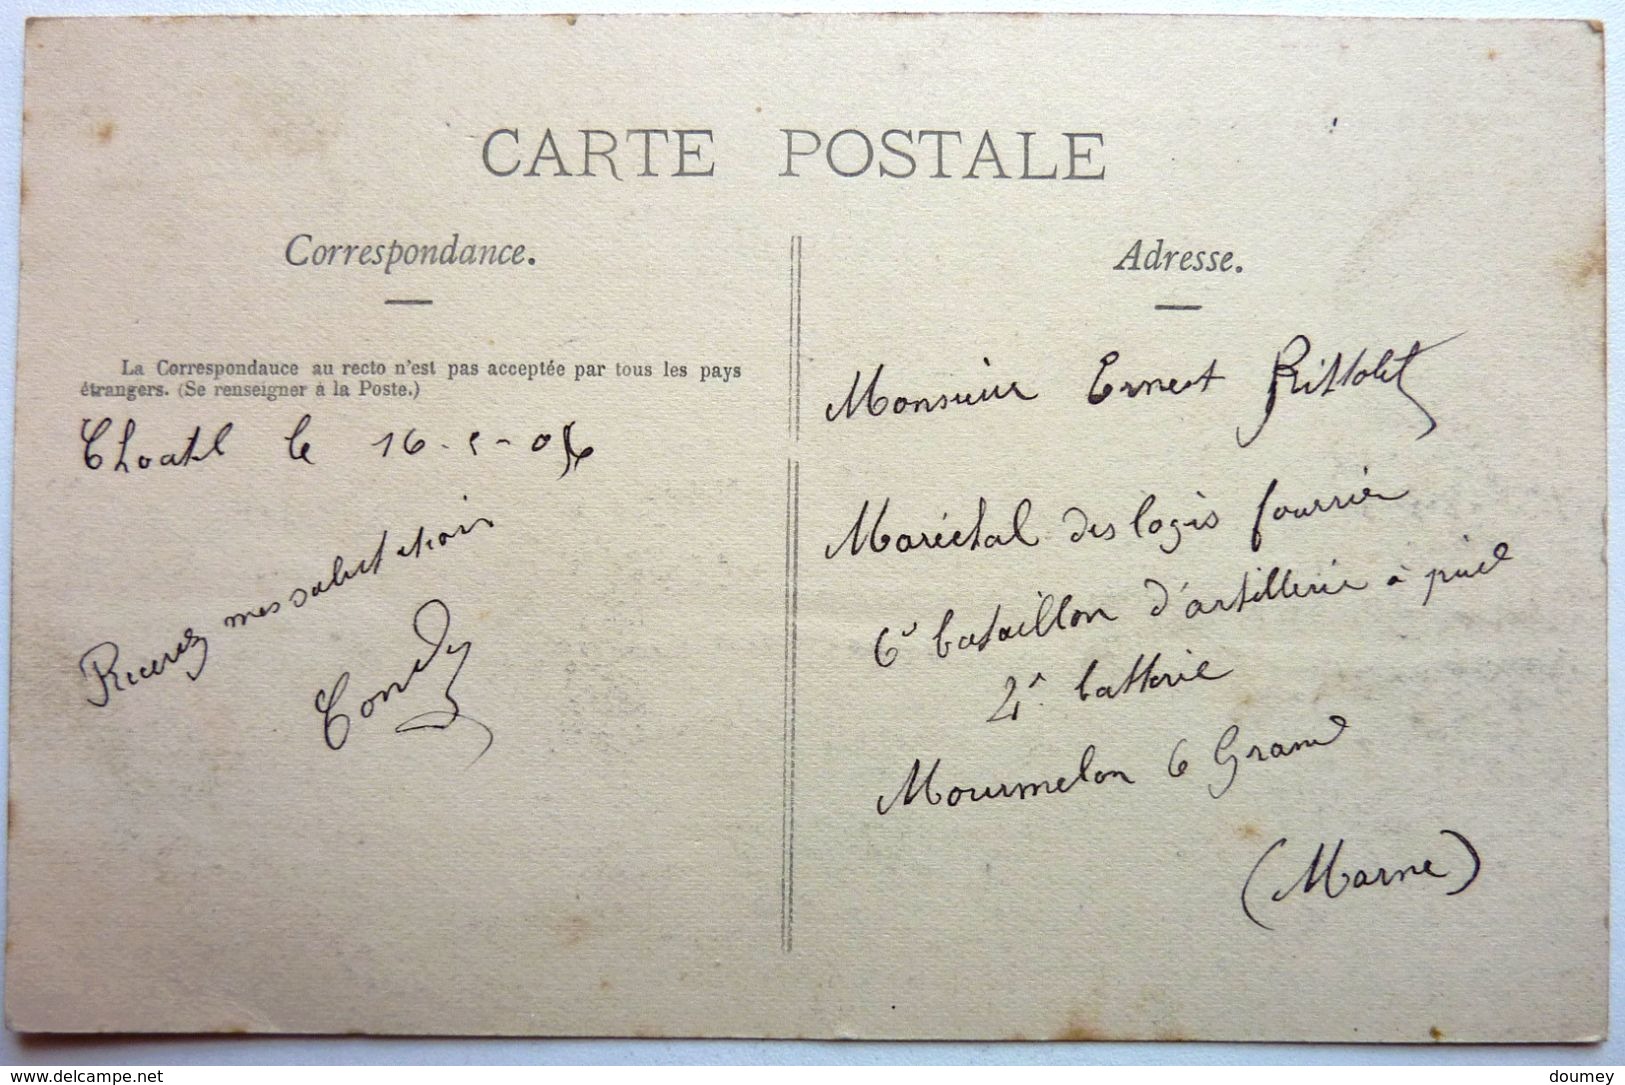 CARTE POSTALE
Correspondance.
Adresse.
La Correspondance au recto n'est pas acceptée par tous les pays
étrangers. (Se renseigner à la Poste.)
le 16-5-06
Recevez mes salutations
Condy
Monsieur Ernest
Maréchal des logis fourrier
6e bataillon d'artillerie à pied
2e batterie
Mourmelon le Grand
(Marne)
www.delcampe.net
doumey